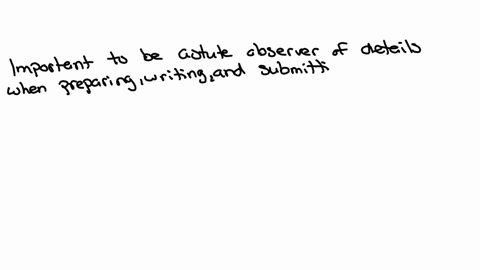 Important to be astute observer of details
when preparing, writing, and submitti